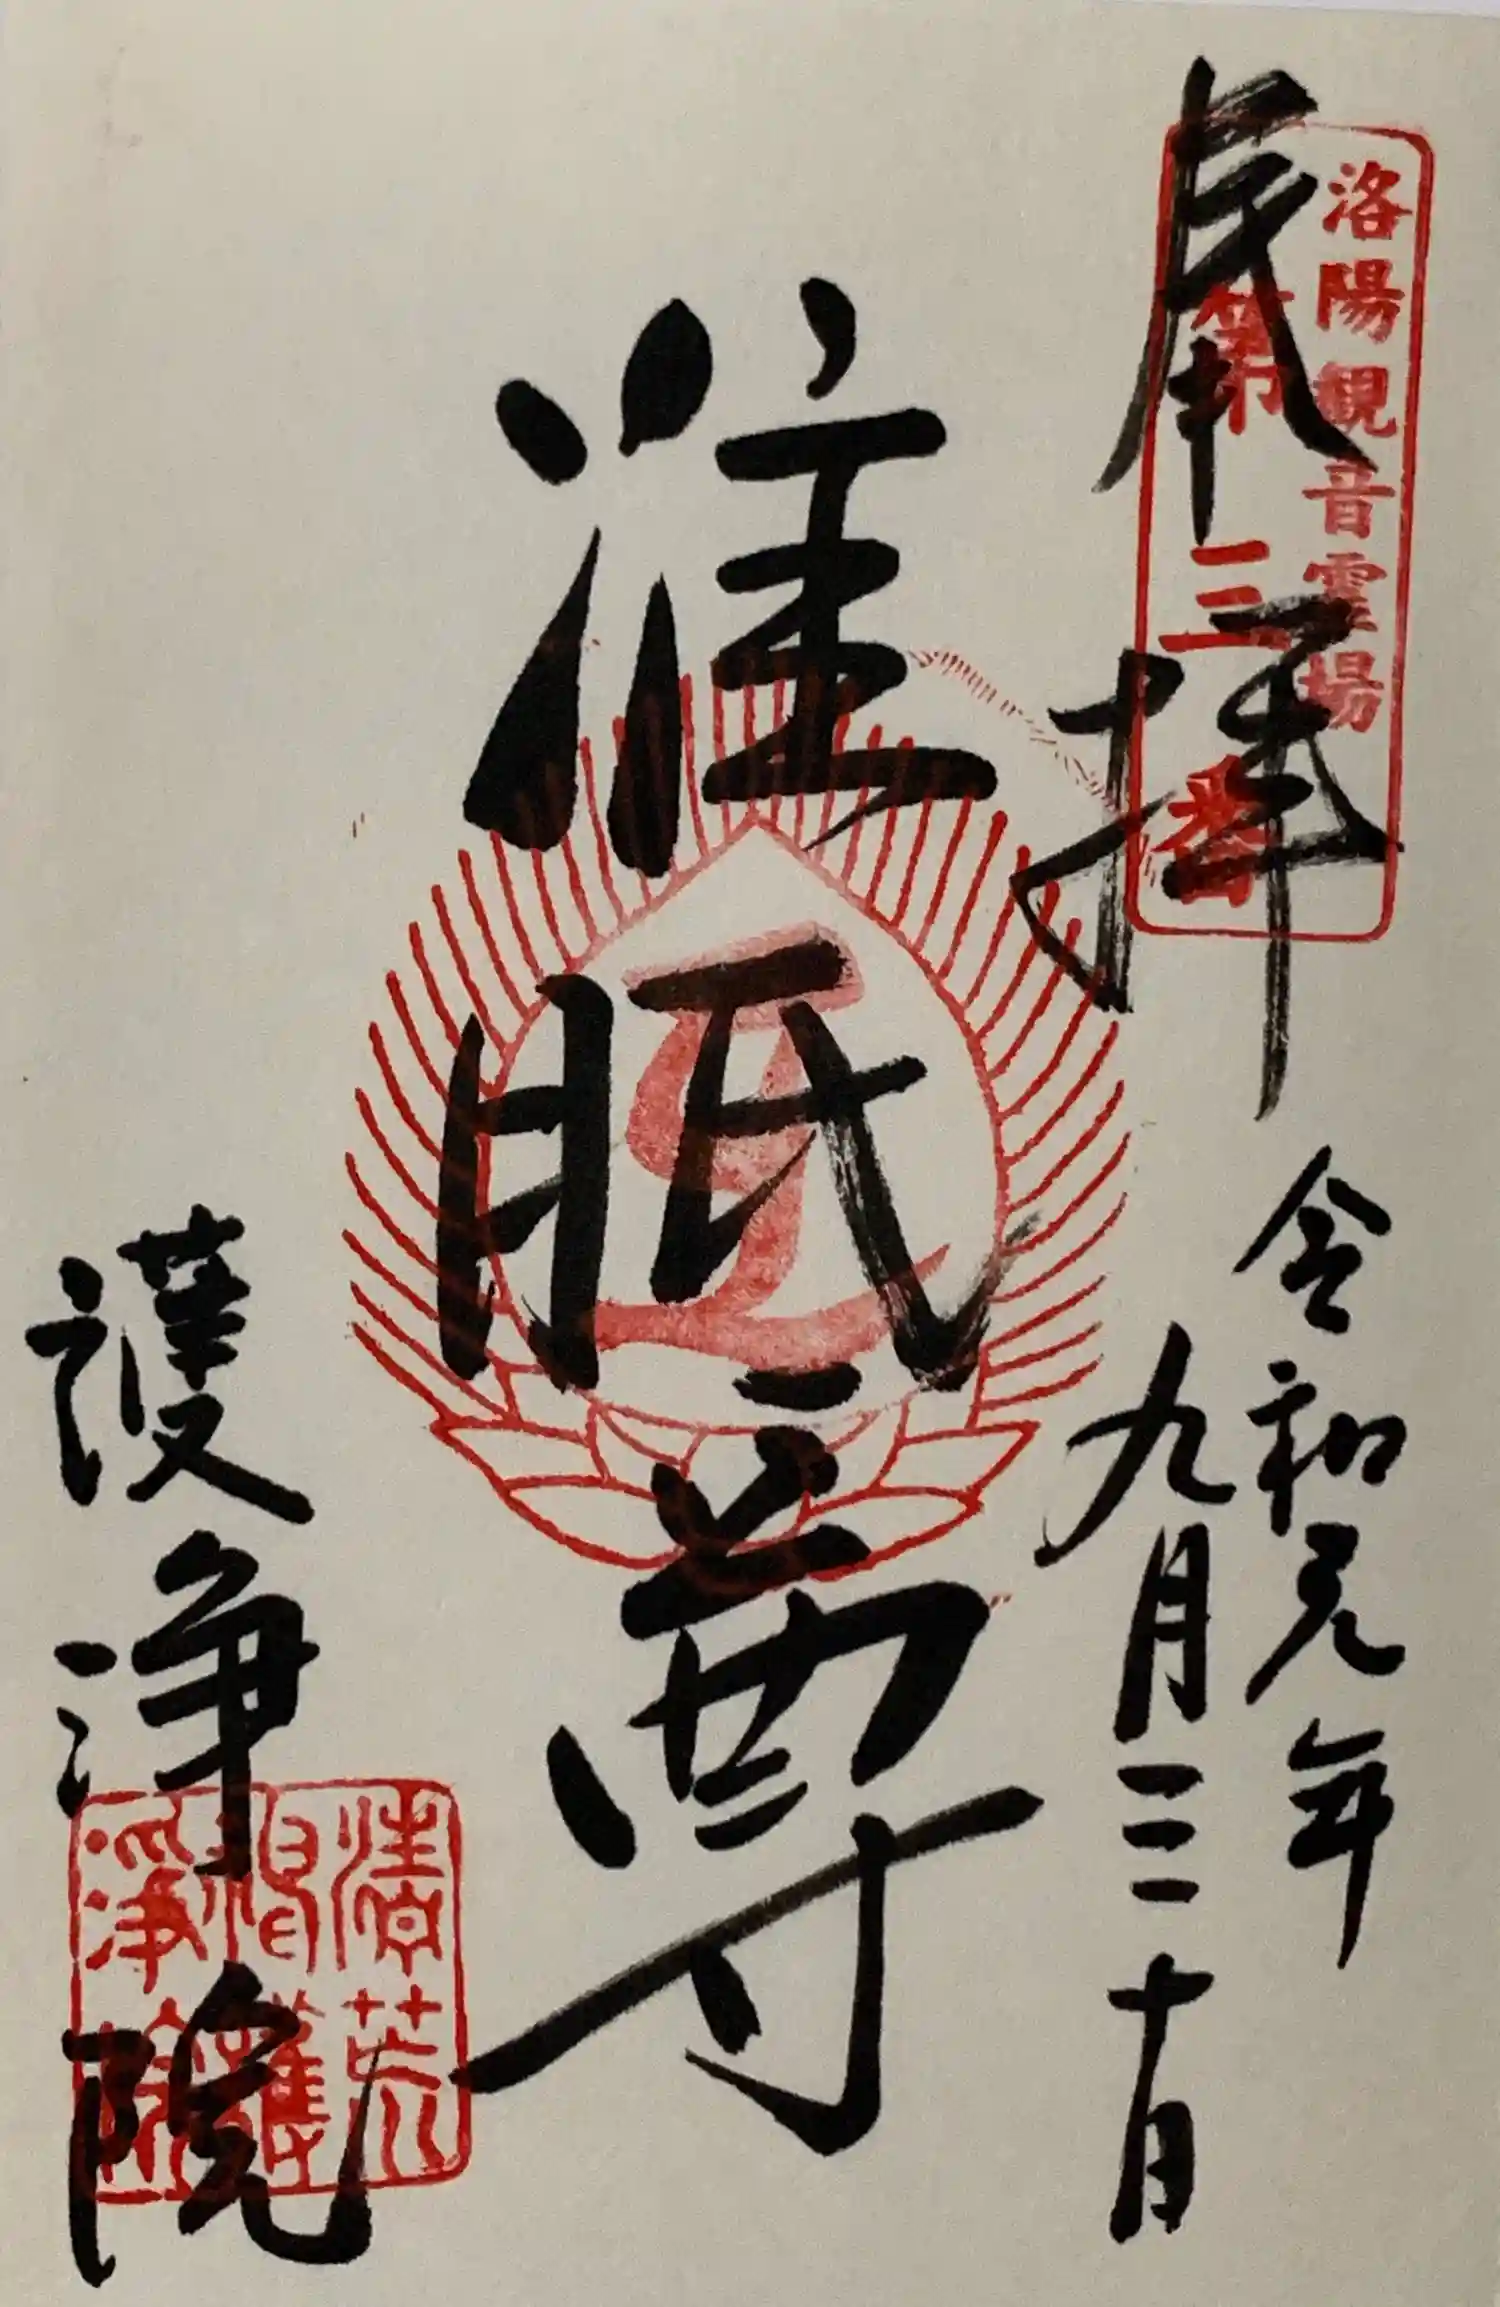 奉拝
洛陽観音霊場
第三番
令和元年
九月三十日
准胝尊
護浄院
清荒
神護
淨院